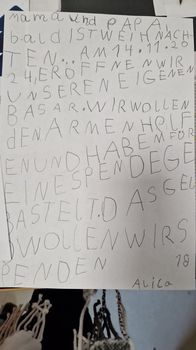 mama und PAPA
bald IST WEIHNACH
TEN... AM 14.11.20
24 ERÖFFNEN WIR
UNSEREN EIGENEN
BASAR. WIR WOLLEN
dEN ARMEN HELF
EN UND HABEM FÜR
EINE SPENDE GE
BASTELT. DAS GEL
D WOLLEN WIR S
PENDEN
18
ALiCa